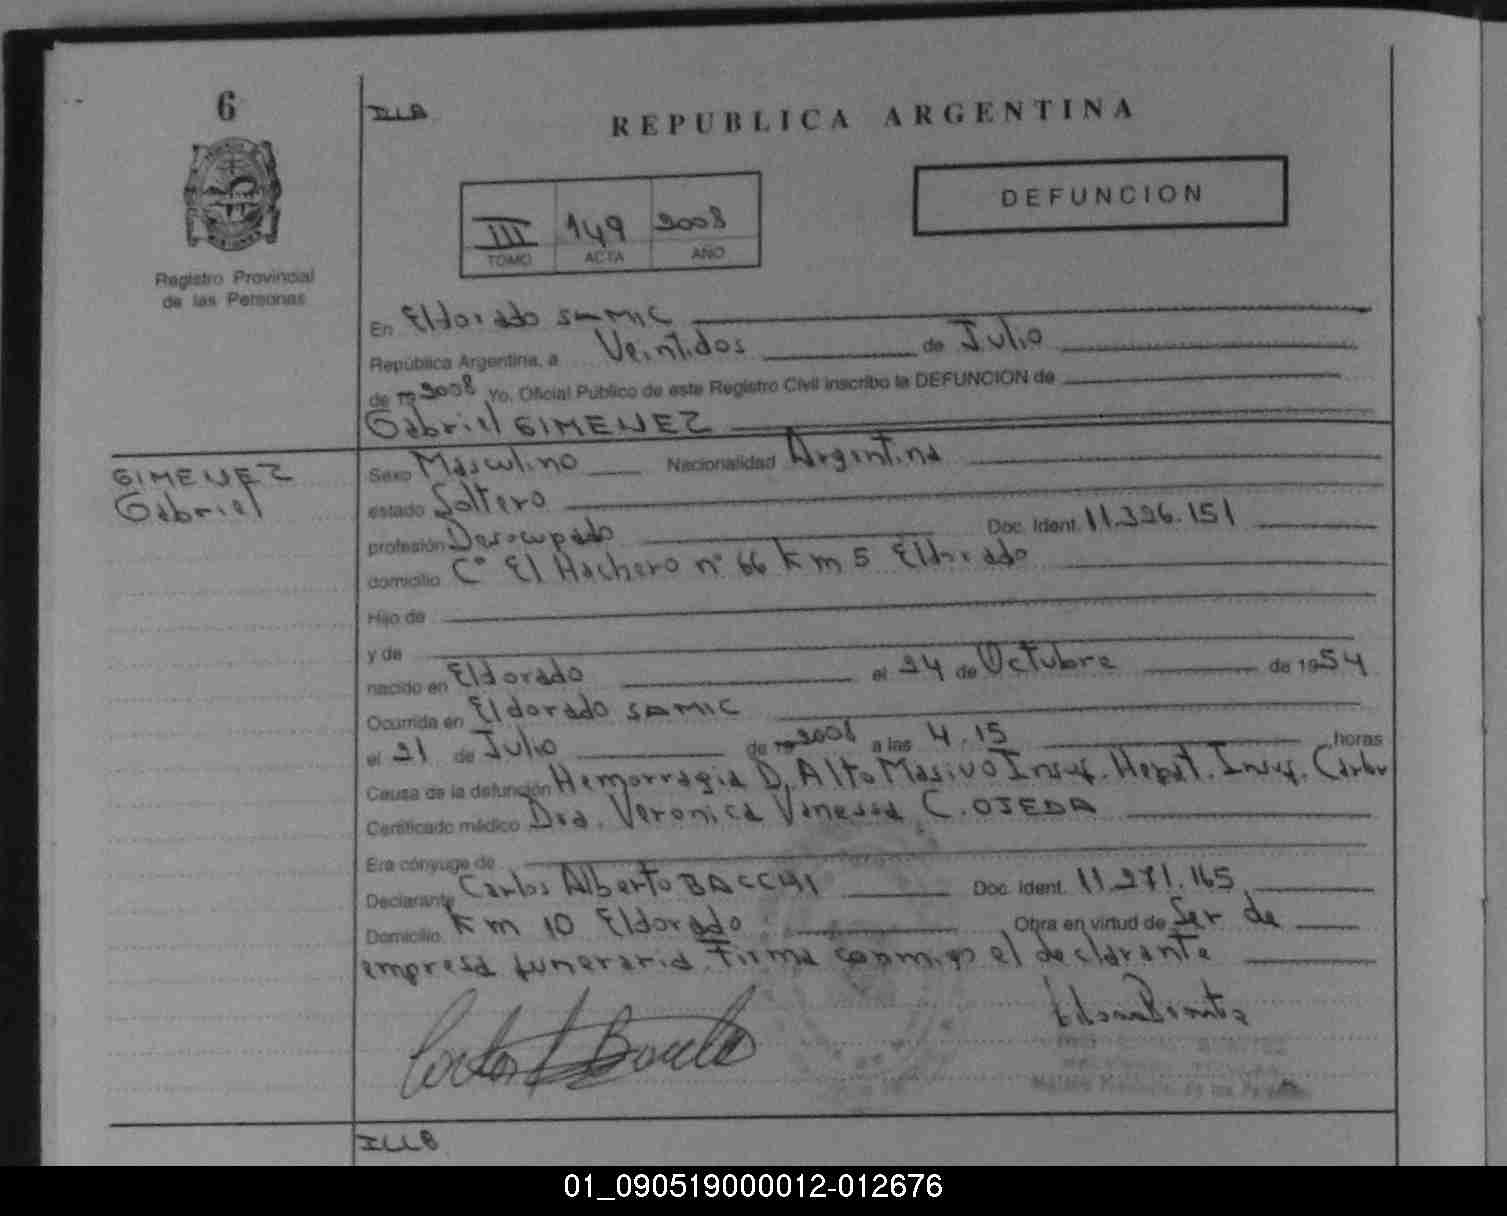 6
REPUBLICA ARGENTINA
DEFUNCION
III 149 2008
TOMO ACTA AÑO
Registro Provincial
de las Personas
En Eldorado SAMIC
República Argentina, a Veintidos de Julio
de 19 2008 Yo, Oficial Público de este Registro Civil inscribo la DEFUNCION de
Gabriel GIMENEZ
GIMENEZ
Gabriel
Sexo Masculino Nacionalidad Argentina
estado Soltero
profesión Desocupado Doc. Ident. 11.326.151
domicilio C° El Hachero n° 66 Km 5 Eldorado
Hijo de
y de
nacido en Eldorado el 24 de Octubre de 1954
Ocurrida en Eldorado SAMIC
el 21 de Julio de 19 2008 a las 4.15 horas
Causa de la defunción Hemorragia D. Alta Masivo Insuf. Hepat. Insuf.
Certificado médico Dra. Veronica Vanessa C. OJEDA
Era cónyuge de
Declarante Carlos Alberto BACCHI Doc. Ident. 11.271.165
Domicilio Km 10 Eldorado Obra en virtud de Ser de
empresa funeraria. Firma conmigo el declarante
01_090519000012-012676